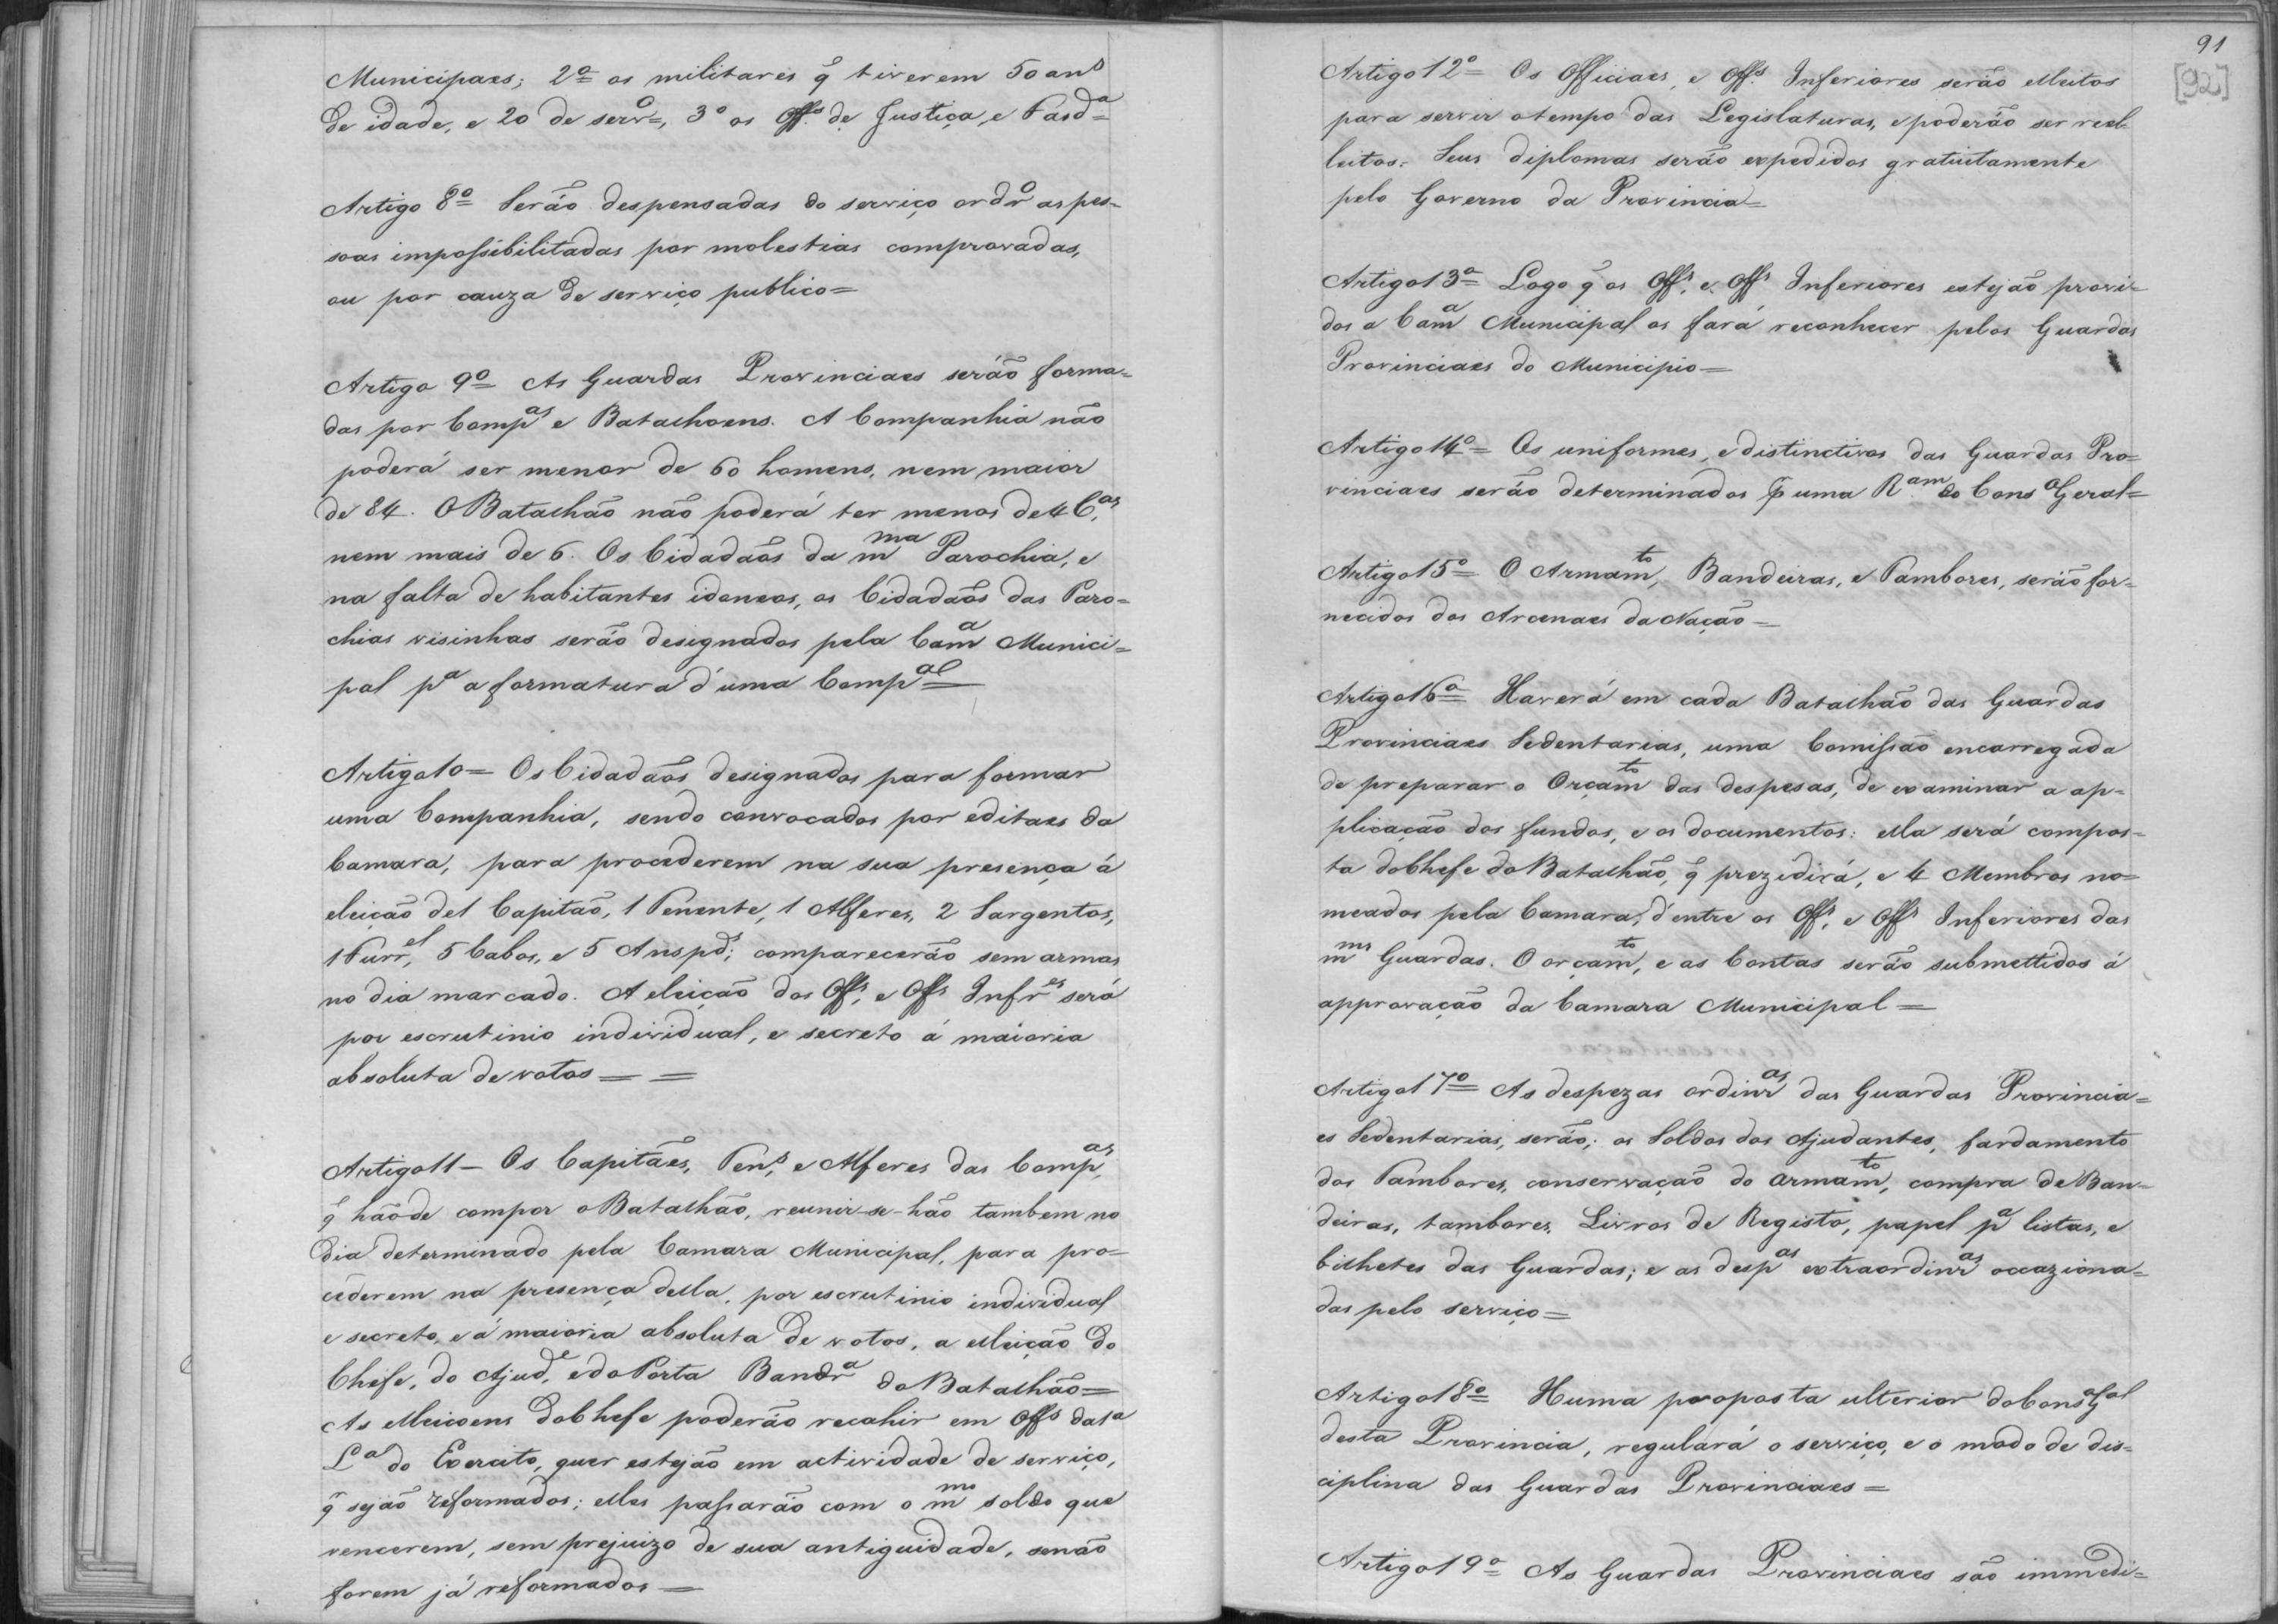 Municipaes; 2º os militares q̃ tiverem 50 anˢ
de idade, e 20 de servº=, 3º os Offˢ de Justiça, e Fazdª=
Artigo 8º= Serão despensadas do serviço ordrº as pes=
soas impossibilitadas por molestias comprovadas,
ou por cauza de serviço publico=
Artigo 9º= As Guardas Provinciaes serão forma=
das por Compᵃˢ e Batalhoens. A Companhia não
poderá ser menor de 60 homens, nem maior
de 84. O Batalhão não poderá ter menos de 4 C.ᵃˢ
nem mais de 6. Os Cidadãos da mᵐᵃ Parochia, e
na falta de habitantes idoneos, os Cidadãos das Paro=
chias visinhas serão designados pela Camª Munici=
pal pª a formatura d'uma Compᵃˡ=
Artigo 10= Os Cidadãos designados para formar
uma Companhia, sendo convocados por editaes da
Camara, para procederem na sua presença á
eleição de 1 Capitão, 1 Tenente, 1 Alferes, 2 Sargentos,
1 Furrᵉˡ, 5 Cabos, e 5 Anspdˢ; comparecerão sem armas
no dia marcado. A eleição dos Offˢ, e Offˢ Infrᵉˢ será
por escrutinio individual, e secreto á maioria
absoluta de votos= =
Artigo 11- Os Capitães, Tenˢ, e Alferes das Compᵃˢ,
q̃ hão de compor o Batalhão, reunir-se-hão tambem no
dia determinado pela Camara Municipal, para pro=
cederem na presença della, por escrutinio individual
e secreto, e á maioria absoluta de votos, a elleição do
Chefe, do Ajudᵉ, e do Porta Bandrª do Batalhão=
As elleicoens do Chefe poderão recahir em Offˢ da 1ª
Lª do Exercito, quer estejão em actividade de serviço,
q̃ sejão reformados; elles passarão com o mᵐᵒ soldo que
vencerem, sem prejuizo de sua antiguidade, senão
forem já reformados=
91
[92]
Artigo 12º= Os Officiaes, e Offˢ Inferiores serão elleitos
para servir o tempo das Legislaturas, e poderão ser reel-
leitos: Seus diplomas serão expedidos gratuitamente
pelo Governo da Provincia=
Artigo 13º= Logo q̃ os Offˢ, e Offˢ Inferiores estejão provi=
dos a Camª Municipal os fará reconhecer pelos Guardas
Provinciaes do Municipio=
Artigo 14º= Os uniformes, e distinctivos das Guardas Pro=
vinciaes serão determinados p̃ uma Rᵃᵐ do Consº Geral=
Artigo 15º= O Armamᵗᵒ, Bandeiras, e Tambores, serão for=
necidos dos Arcenaes da Nação=
Artigo 16º= Haverá em cada Batalhão das Guardas
Provinciaes Sedentarias, uma Comissão encarregada
de preparar o Orçamᵗᵒ das despesas, de examinar a ap=
plicação dos fundos, e os documentos: ella será compos=
ta do Chefe do Batalhão, q̃ prezidirá, e 4 Membros no=
meados pela Camara, d'entre os Offˢ, e Offˢ Inferiores das
mᵐˢ Guardas. O orçamᵗᵒ, e as Contas serão submettidos á
approvação da Camara Municipal=
Artigo 17º= As despezas ordinrᵃˢ das Guardas Provincia=
es Sedentarias, serão; os Soldos dos Ajudantes, fardamento
dos Tambores, conservação do armamᵗᵒ, compra de Ban=
deiras, tambores, Livros de Registo, papel pª listas, e
bilhetes das Guardas; e as despᵃˢ extraordinrᵃˢ occaziona=
das pelo serviço=
Artigo 18º= Huma proposta ulterior do Consº Gᵃˡ
desta Provincia, regulará o serviço, e o modo de dis=
ciplina das Guardas Provinciaes=
Artigo 19º= As Guardas Provinciaes são immedi=